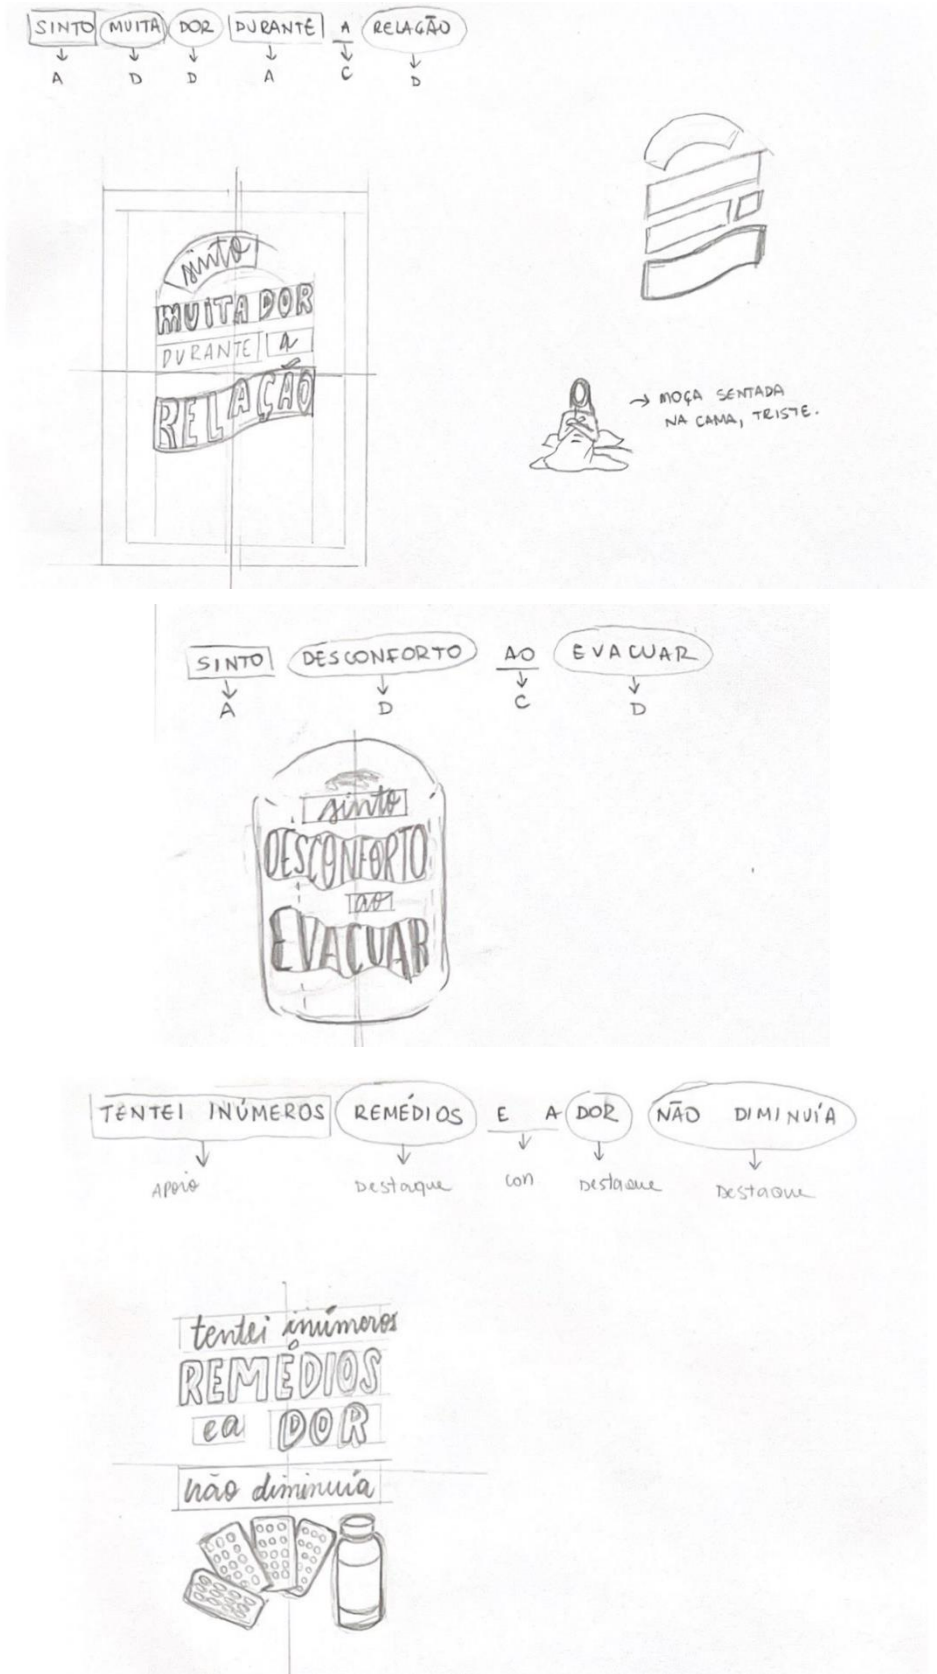 SINTO MUITA DOR DURANTE A RELAÇÃO
A D D A C D
sinto
MUITA DOR
DURANTE a
RELAÇÃO
→ MOÇA SENTADA
NA CAMA, TRISTE.
SINTO DESCONFORTO AO EVACUAR
A D C D
sinto
DESCONFORTO
ao
EVACUAR
TENTEI INÚMEROS REMÉDIOS E A DOR NÃO DIMINUÍA
APOIO Destaque con Destaque Destaque
tentei inúmeros
REMÉDIOS
e a DOR
não diminuía